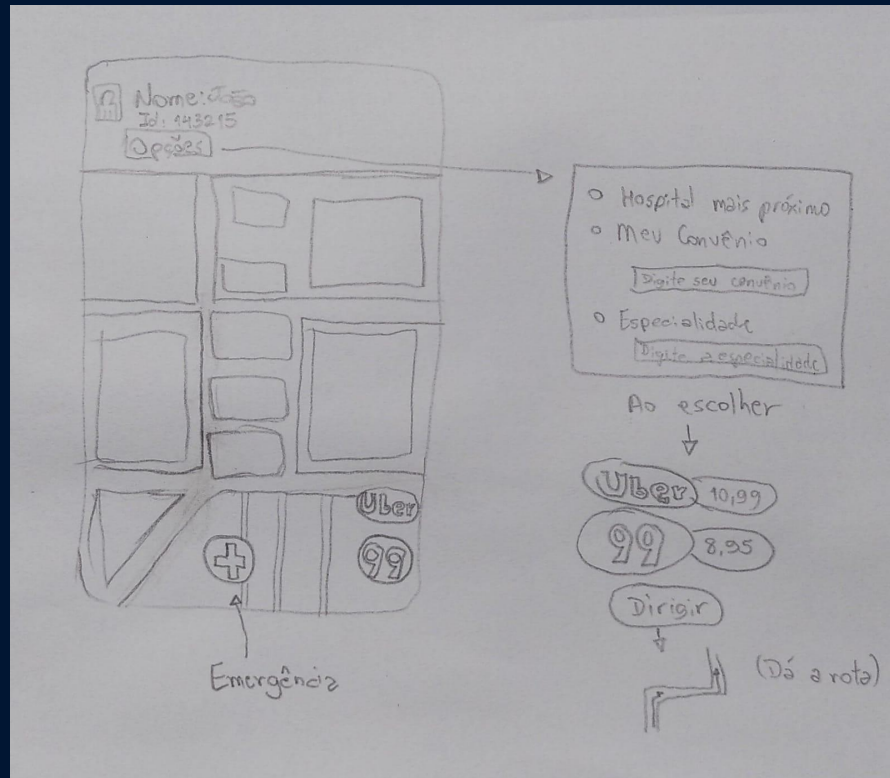 Nome: João
Id: 143215
Opções
Uber
99
Emergência
Hospital mais próximo
Meu Convênio
Digite seu convênio
Especialidade
Digite a especialidade
Ao escolher
Uber 10,99
99 8,95
Dirigir
(Dá a rota)